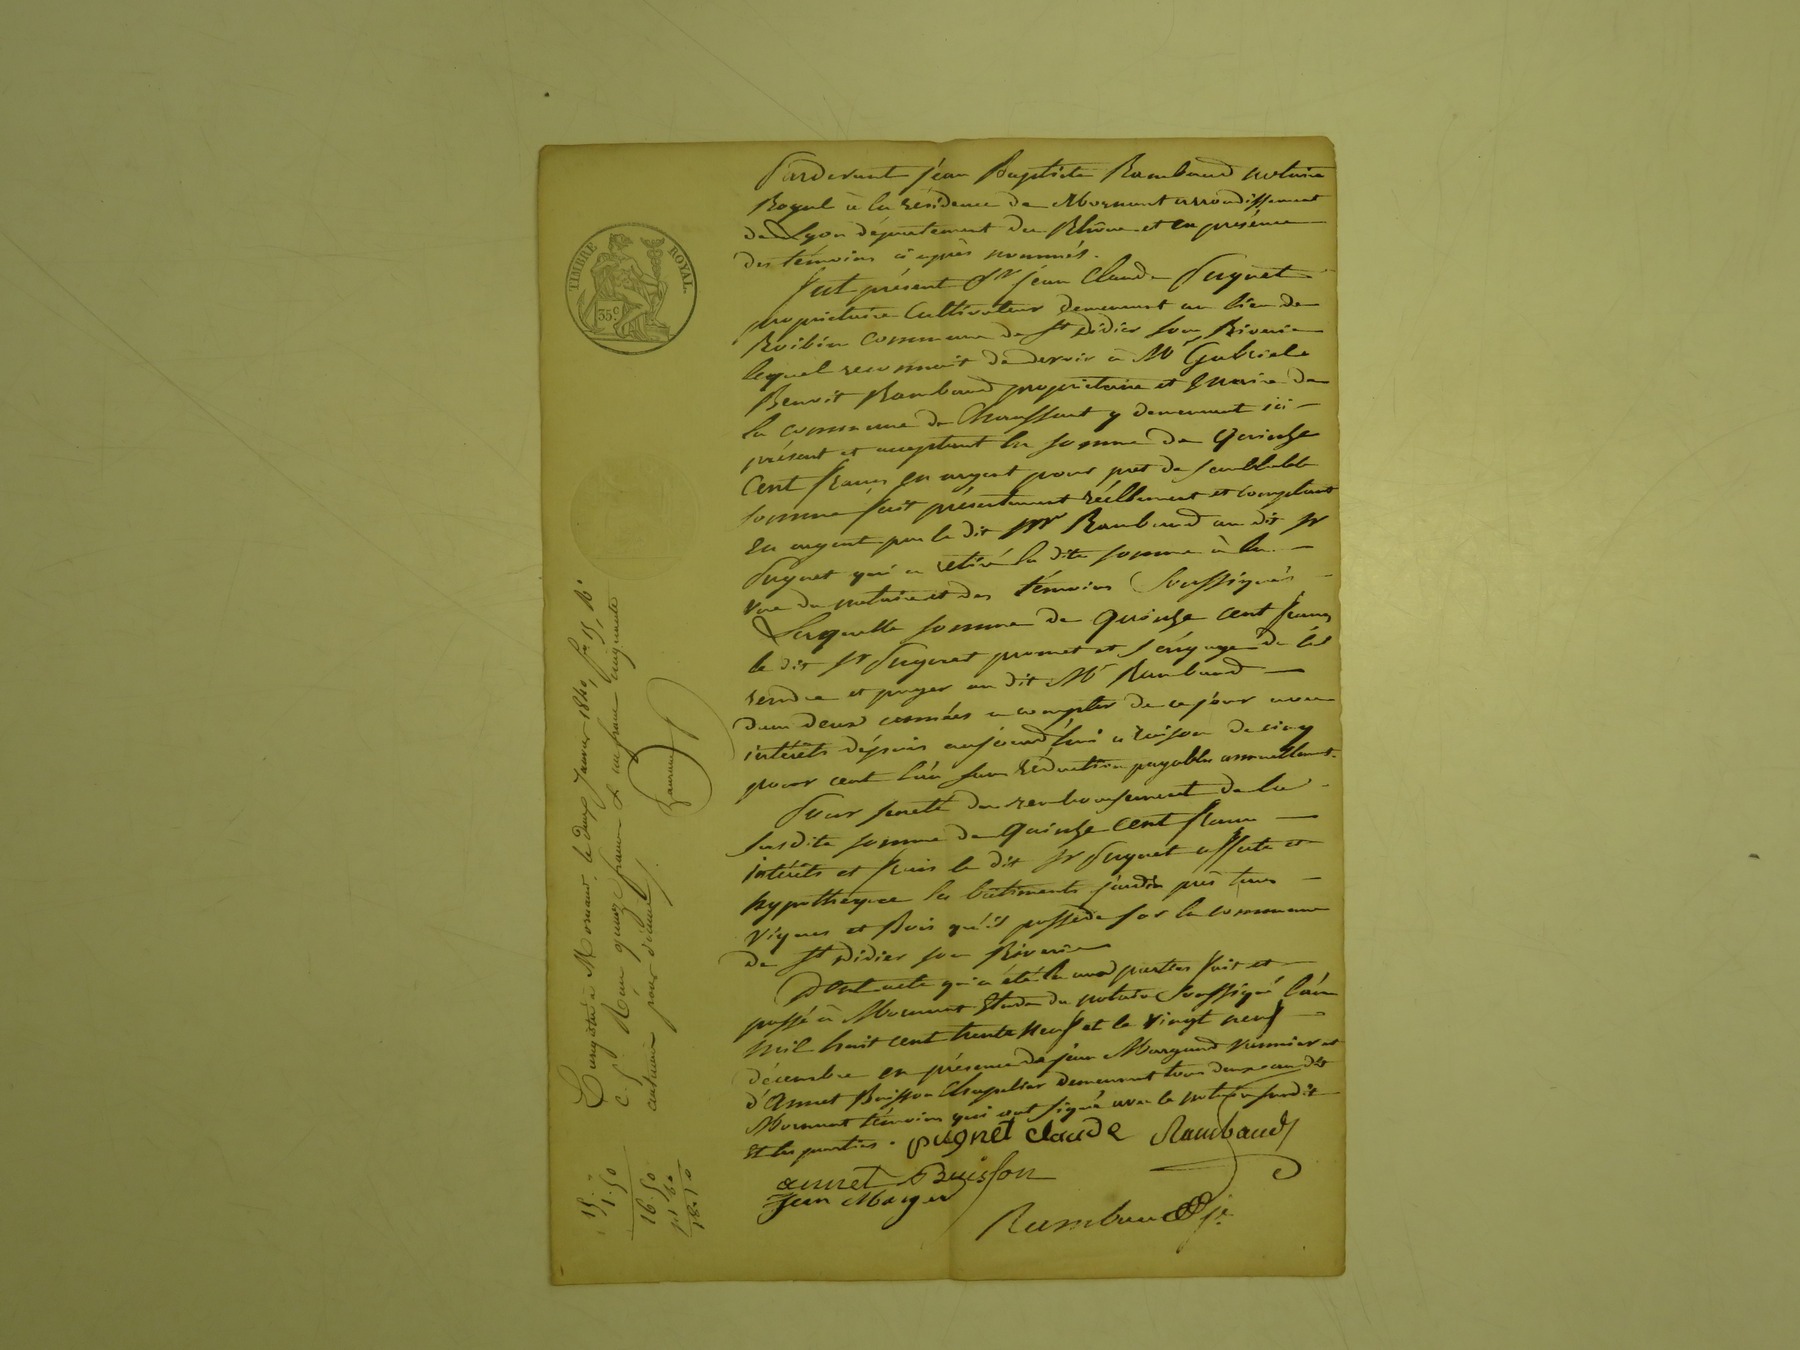 TIMBRE ROYAL
35 c
Pardevant jéan Baptiste Rambaud notaire
Royal à la résidence de Mornant arrondissement
de Lyon département du Rhône et en présence
des témoins ci après nommés.
fut présent Sr jéan Claude Puynet
propriétaire Cultivateur demeurant au lieu de
commune de St Didier sous Riverie
lequel reconnait de devoir à Mr Gabriel
Benoit Rambaud propriétaire et Maire de
la commune de Chaussant y demeurant ici
présent et acceptant la somme de Quinze
Cent francs en argent pour pret de semblable
somme fait présentement réellement et comptant
en argent par le dit Mr Rambaud au dit Sr
Puynet qui a retiré la dite somme à la
vue du notaire et des témoins soussignés
Laquelle somme de quinze cent francs
le dit Sr Puynet promet et s'éngage de les
rendre et payer au dit Mr Rambaud
dans deux années a compter de ce jour avec
intérêts dépuis aujourd'hui a raison de cinq
pour cent l'án sans réduction payables annuellement.
Pour sureté du remboursement de la
susdite somme de Quinze Cent francs
intérêts et frais le dit Sr Puynet affecte et
hypothèque les bâtiments jardin près terres
vignes et Bois qu'il possède sur la commune
de St Didier sous Riverie
Dont acte qui a été lu aux parties fait et
passé à Mornant Etude du notaire soussigné l'án
mil huit cent trente neuf et le vingt neuf
décembre en présence de jéan Margand vannier et
d'Annet Buisson Chapelier demeurant tous deux au dit
Mornant témoins qui ont signé avec le notaire susdit
et les parties.
puynet claude Rambaud
annet Buisson
Jean
Rambaud
Enregistré à Mornant, le deux janvier 1840, fo 15, Ro
c. Reçu quinze francs & un franc cinquante
centimes pour décime.
15. -
1. 50
16. 50